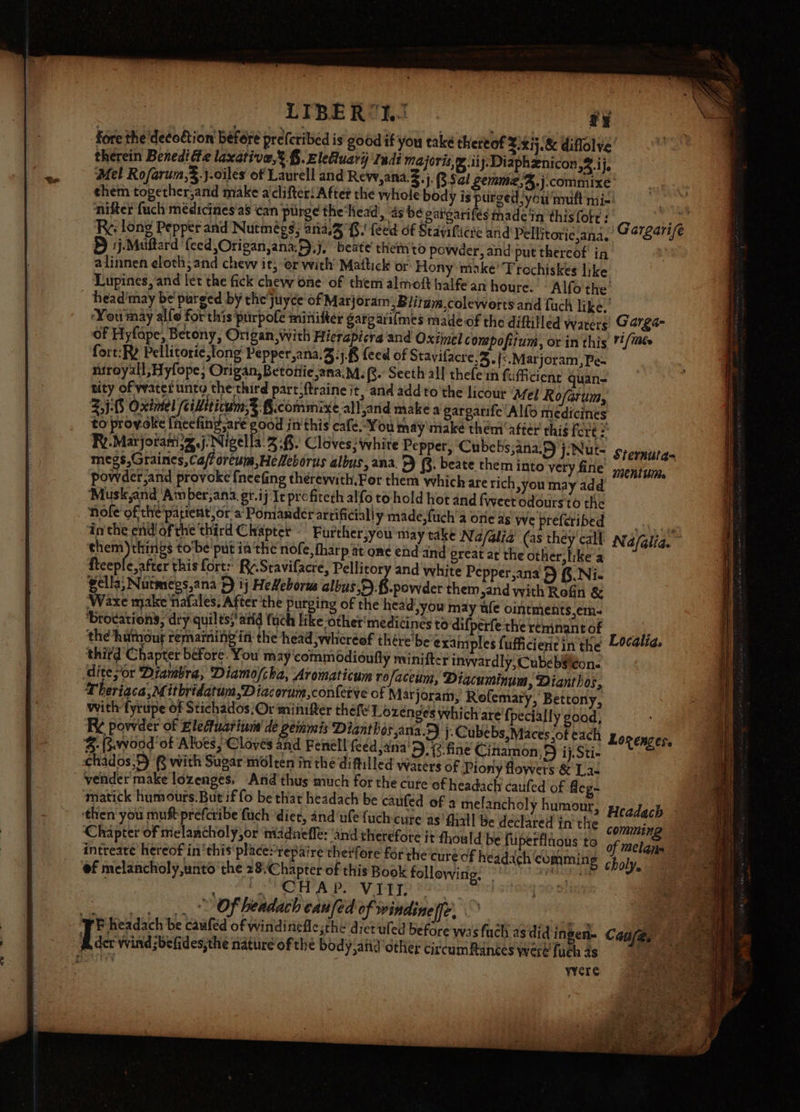 LIBER I.
fore the decoction before prescribed is good if you take thereof ℥.xij. & dissolve
therein Benedictæ laxativæ, ℥ ß. Electuarij Indi majoris, ʒ.iij. Diaphænicon, ʒ.ij.
Mel Rosarum, ℥.j. oiles of Laurell and Rew, ana. ℥.j. ß Sal gemmæ, ʒ.j. commixe
them together, and make a clister: After the whole body is purged, you must mi-
nister such medicines as can purge the head, as be gargarises made in this sort:
℞. long Pepper and Nutmegs, ana, ʒ ß. seed of Stavisacre and Pellitorie, ana.
℈ ij. Mustard seed, Origan, ana. ℈.j. beate them to powder, and put thereof in
a linnen cloth, and chew it; or with Mastick or Hony make Trochiskes like
Lupines, and let the sick chew one of them almost halfe an houre. Also the
head may be purged by the juyce of Marjoram, Blitum, coleworts and such like.
You may also for this purpose minister gargarismes made of the distilled waters
of Hysape, Betony, Origan, with Hierapicra and Oximel compositum, or in this
sort: ℞ Pellitorie, long Pepper, ana. ʒ.j. ß seed of Stavisacre, ʒ. ß. Marjoram, Pe-
niroyall, Hysope, Origan, Betonie, ana. M. ß. Seeth all these in sufficient quan-
tity of water unto the third part, straine it, and add to the licour Mel Rosarum,
℥.j. ß Oximel scilliticum, ℥ ß. commixe all, and make a gargarise Also medicines
to provoke sneesing, are good in this case. You may make them after this sort:
℞. Marjoram, ʒ.j. Nigella ʒ.ß. Cloves, white Pepper, Cubebs, ana. ℈ j. Nut-
megs, Graines, Castoreum, Helleborus albus, ana. ℈ ß. beate them into very fine
powder, and provoke sneesing therewith, For them which are rich, you may add
Musk, and Amber, ana. gr. ij It profiteth also to hold hot and sweet odours to the
nose of the patient, or a Pomander artificially made, such a one as we prescribed
in the end of the third Chapter Further, you may take Nasalia (as they call
them) things to be put in the nose, sharp at one end and great at the other, like a
steeple, after this sort: ℞. Stavisacre, Pellitory and white Pepper, ana ℈ ß. Ni-
gella, Nutmegs, ana ℈ ij Helleborus albus, ℈. ß. powder them, and with Rosin &
Waxe make nasales. After the purging of the head, you may use ointments, em-
brocations, dry quilts, and such like other medicines to disperse the remnant of
the humour remaining in the head, whereof there be examples sufficient in the
third Chapter before. You may commodiously minister inwardly, Cubebs con-
dite, or Diambra, Diamoscha, Aromaticum rosaceum, Diacuminum, Dianthos,
Theriaca, Mitbridatum, Diacorum, conserve of Marjoram, Rosemary, Bettony,
with syrupe of Stichados, Or minister these Lozenges which are specially good,
℞ powder of Electuarium de gemmis Dianthos, ana. ℈ j. Cubebs, Maces, of each
ʒ. ß. wood of Aloes, Cloves and Fenell seed, ana ℈. ß. fine Cinamon, ℈ ij. Sti-
chados, ℈ ß with Sugar molten in the distilled waters of Piony flowers & La-
vender make lozenges. And thus much for the cure of headach caused of fleg-
matick humours. But if so be that headach be caused of a melancholy humour,
then you must prescribe such diet, and use such cure as shall be declared in the
Chapter of melancholy, or madnesse: and therefore it should be superfluous to
intreate hereof in this place: repaire therfore for the cure of headach comming
of melancholy, unto the 28. Chapter of this Book following.
CHAP. VIII.
Of headach caused of windinesse.
IF headach be caused of windinesse, the diet used before was such as did ingen-
der wind; besides, the nature of the body, and other circumstances were such as
were
Gargarise
Garga-
rismes
Sternuta-
mentum.
Nasalia.
Localia.
Lozenges.
Headach
comming
of melan-
choly.
Cause.